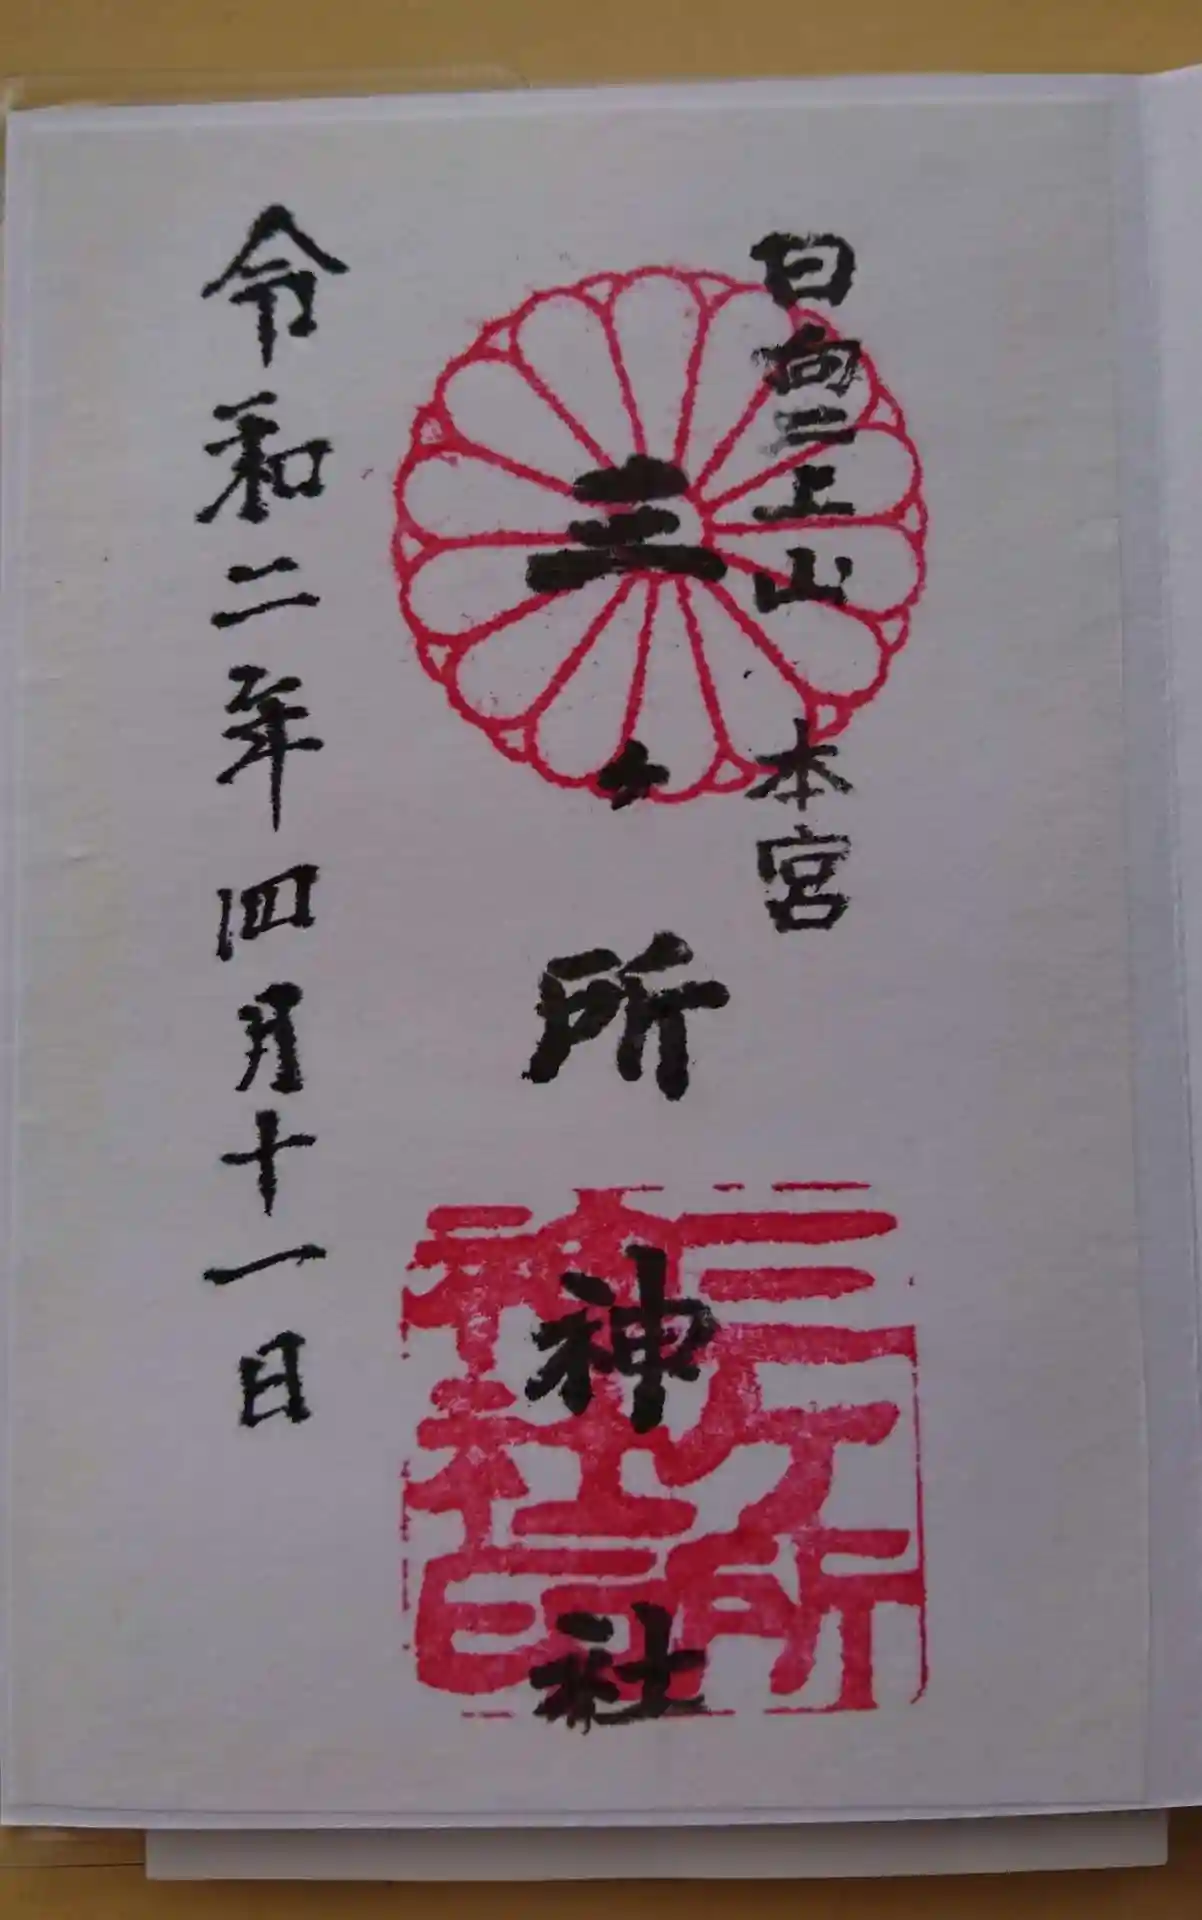 日向二上山 本宮
三ヶ所神社
三ヶ所神社印
令和二年四月十一日